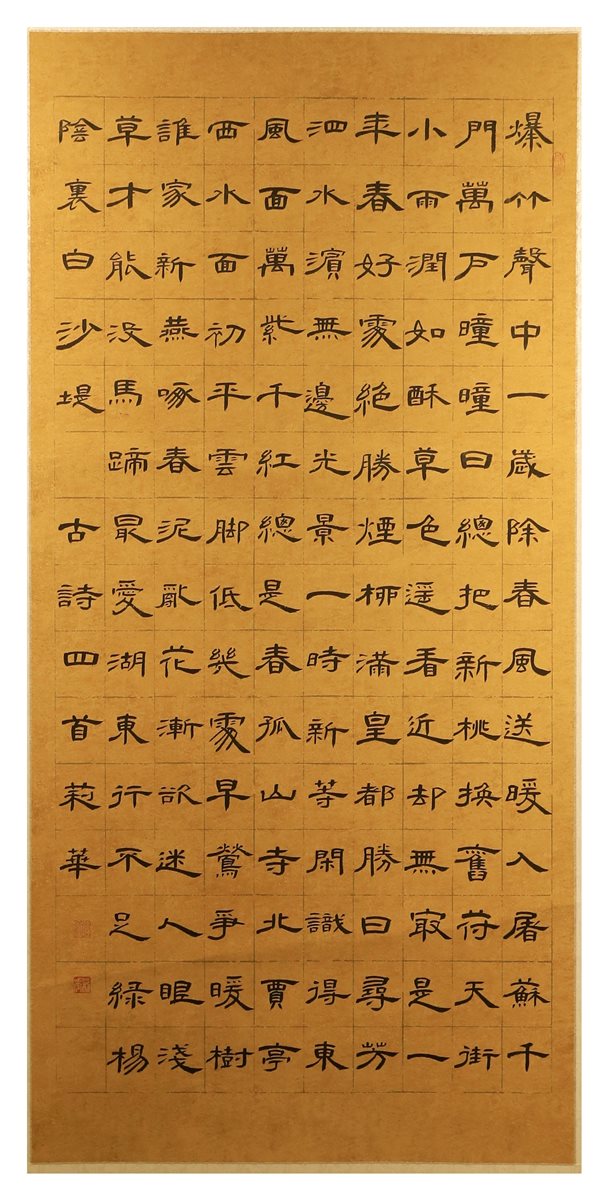 爆竹聲中一歲除春風送暖入屠蘇千
門萬戶曈曈日總把新桃換舊符天街
小雨潤如酥草色遥看近却無最是一
年春好處絕勝煙柳滿皇都勝日尋芳
泗水濱無邊光景一時新等閑識得東
風面萬紫千紅總是春孤山寺北賈亭
西水面初平雲脚低幾處早鶯爭暖樹
誰家新燕啄春泥亂花漸欲迷人眼淺
草才能没馬蹄最愛湖東行不足綠楊
陰裏白沙堤 古詩四首莉華